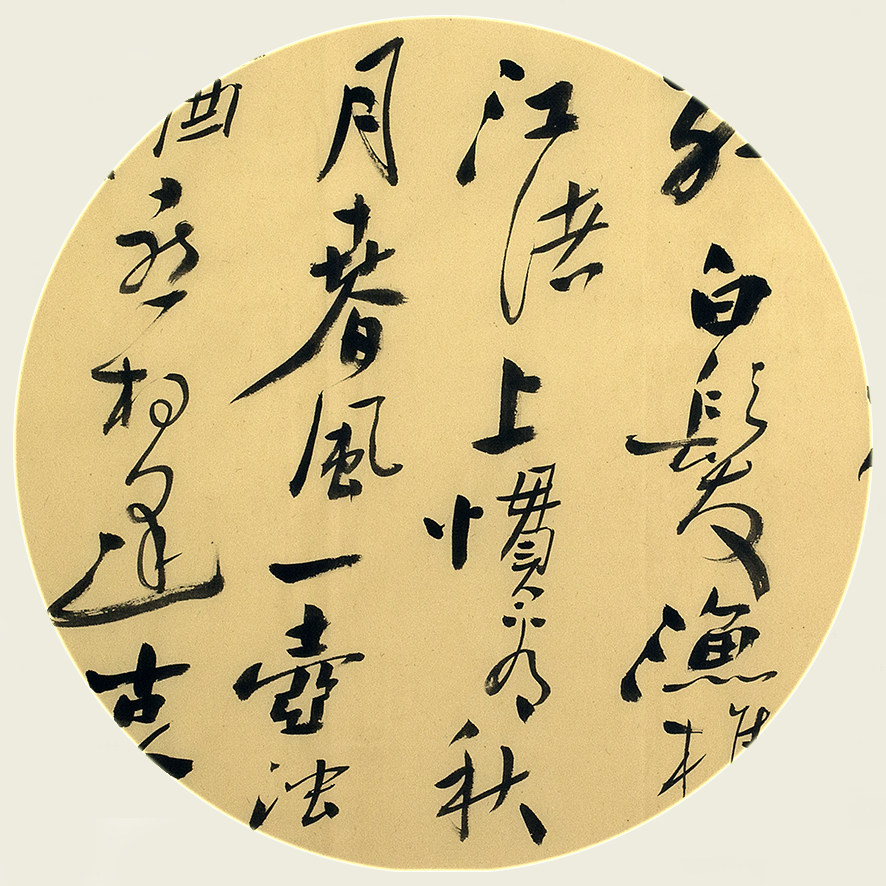 白髮漁樵
江渚上慣看秋
月春風一壺浊
酒喜相逢古